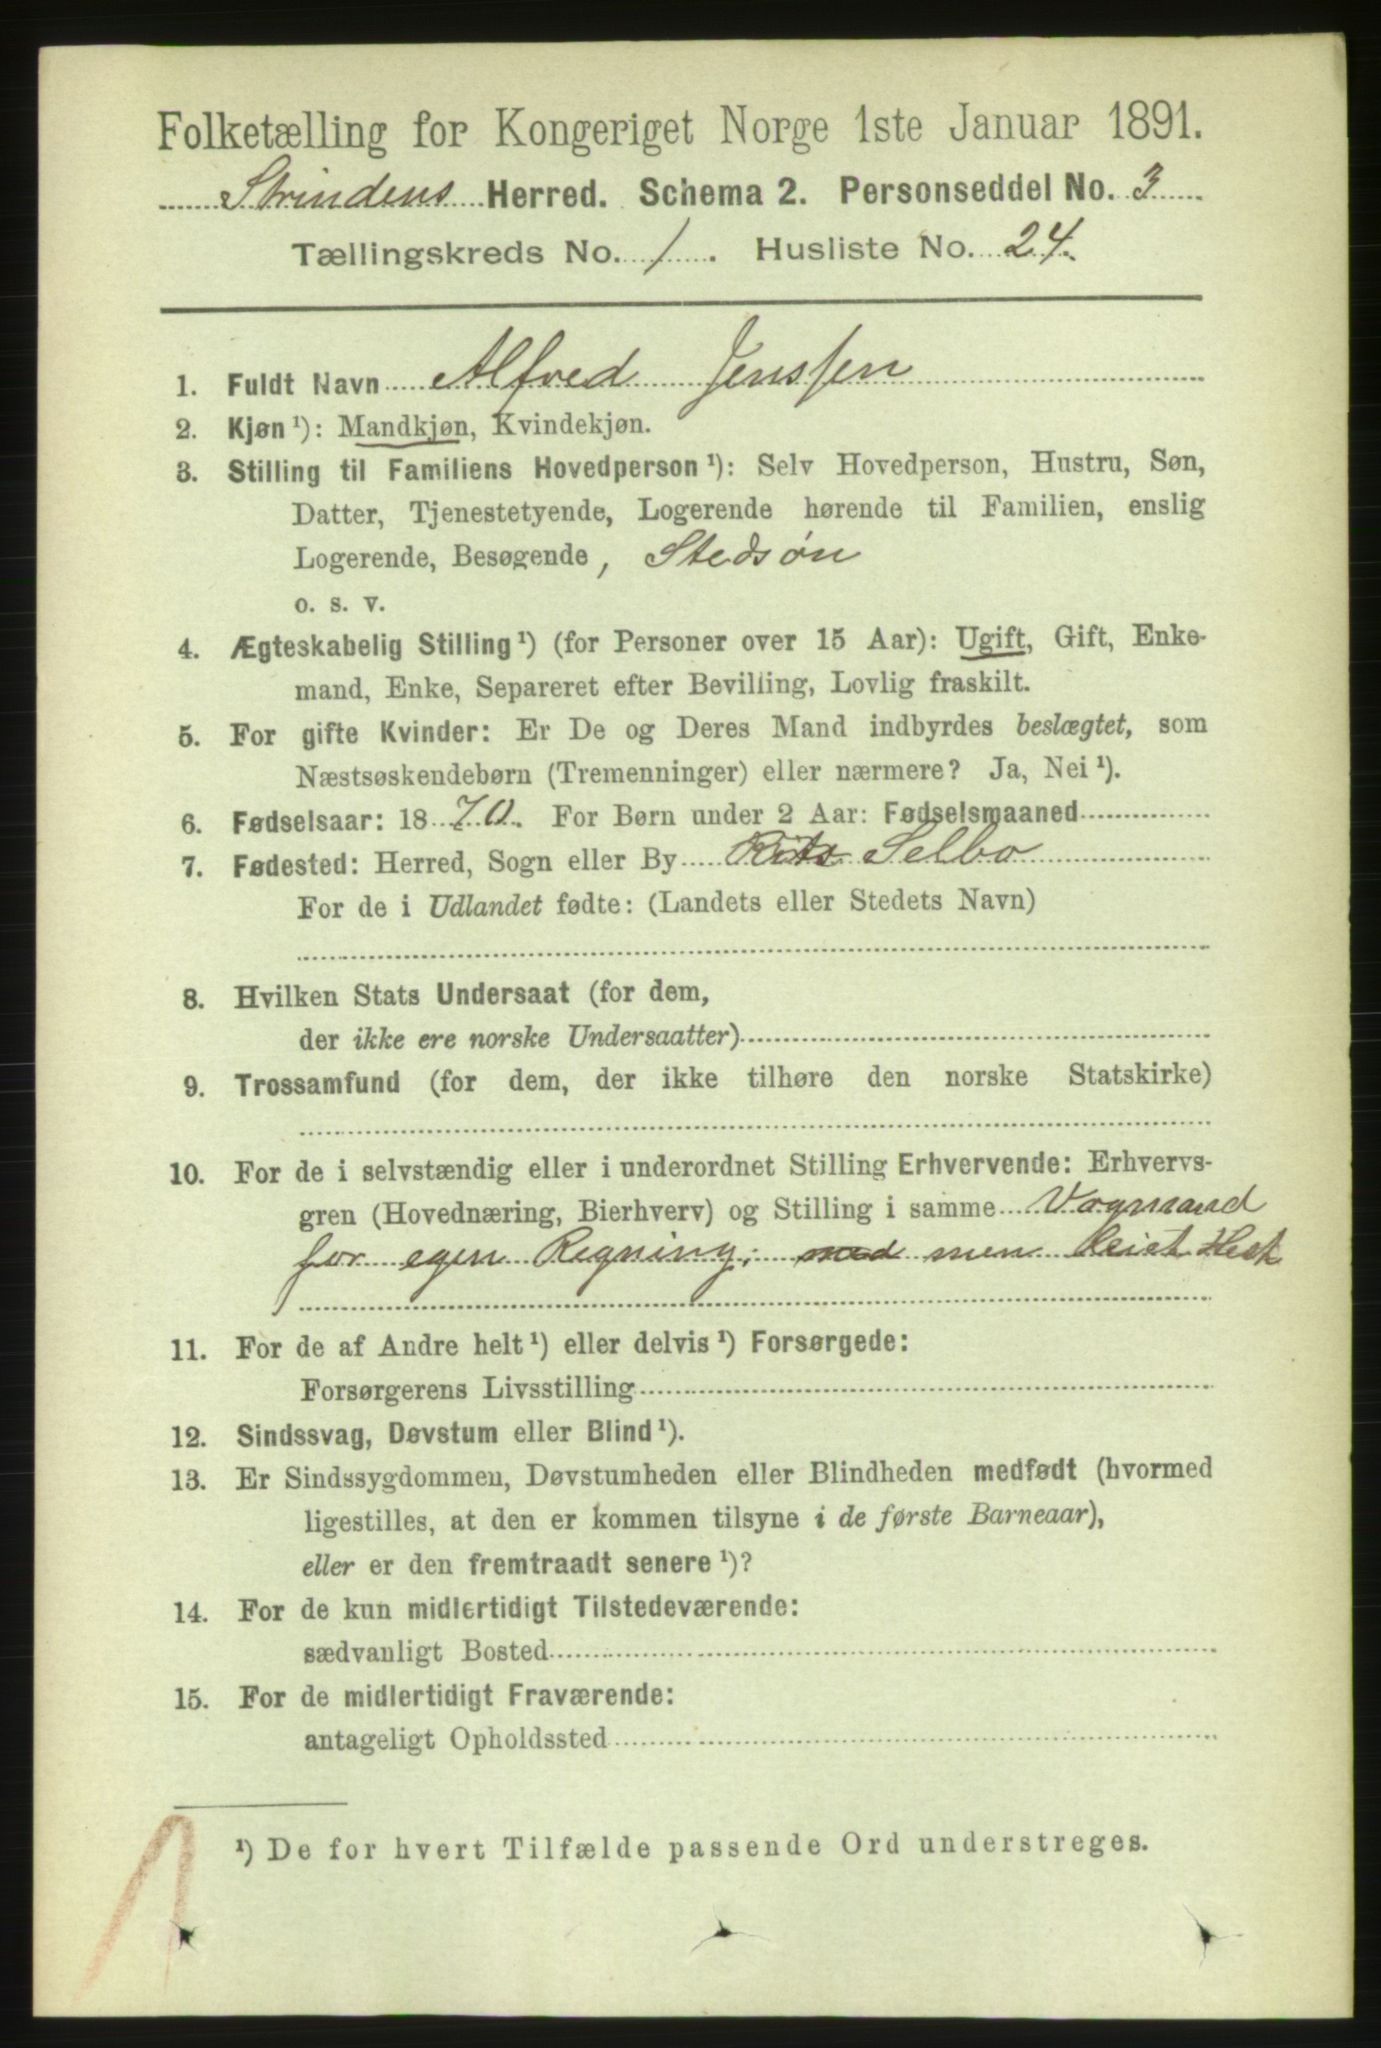 Folketælling for Kongeriget Norge 1ste Januar 1891.
Strindens Herred. Schema 2. Personseddel No. 3
Tællingskreds No. 1. Husliste No. 24.
1. Fuldt Navn Alfred Jenssen
2. Kjøn ¹): Mandkjøn, Kvindekjøn.
3. Stilling til Familiens Hovedperson ¹): Selv Hovedperson, Hustru, Søn,
Datter, Tjenestetyende, Logerende hørende til Familien, enslig
Logerende, Besøgende, Stedsøn
o. s. v.
4. Ægteskabelig Stilling ¹) (for Personer over 15 Aar): Ugift, Gift, Enke-
mand, Enke, Separeret efter Bevilling, Lovlig fraskilt.
5. For gifte Kvinder: Er De og Deres Mand indbyrdes beslægtet, som
Næstsøskendebørn (Tremenninger) eller nærmere? Ja, Nei ¹).
6. Fødselsaar: 1870. For Børn under 2 Aar: Fødselsmaaned
7. Fødested: Herred, Sogn eller By Selbo
For de i Udlandet fødte: (Landets eller Stedets Navn)
8. Hvilken Stats Undersaat (for dem,
der ikke ere norske Undersaatter)
9. Trossamfund (for dem, der ikke tilhøre den norske Statskirke)
10. For de i selvstændig eller i underordnet Stilling Erhvervende: Erhvervs-
gren (Hovednæring, Bierhverv) og Stilling i samme Vognmand
for egen Regning; med men leiet Hest
11. For de af Andre helt ¹) eller delvis ¹) Forsørgede:
Forsørgerens Livsstilling
12. Sindssvag, Døvstum eller Blind ¹).
13. Er Sindssygdommen, Døvstumheden eller Blindheden medfødt (hvormed
ligestilles, at den er kommen tilsyne i de første Barneaar),
eller er den fremtraadt senere ¹)?
14. For de kun midlertidigt Tilstedeværende:
sædvanligt Bosted
15. For de midlertidigt Fraværende:
antageligt Opholdssted
¹) De for hvert Tilfælde passende Ord understreges.